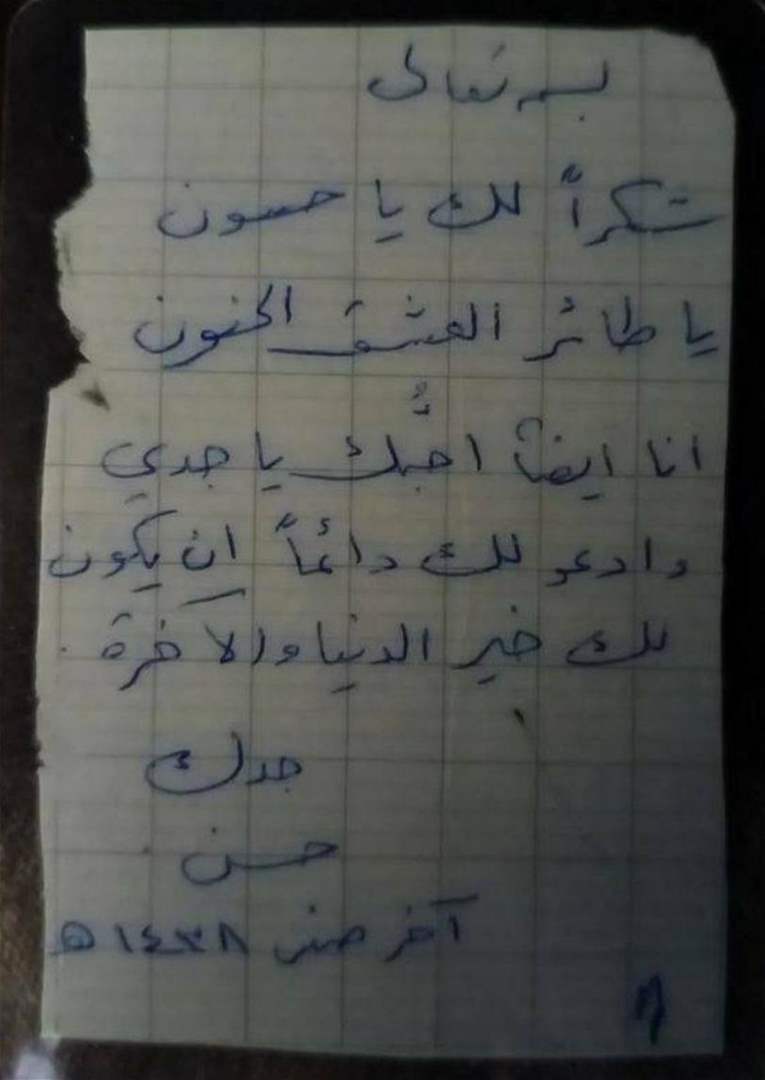 بسمه تعالى
شكراً لك يا حسون
يا طائر العشق الحنون
انا ايضاً احبُّك يا جدي
وادعو لك دائماً ان يكون
لك خير الدنيا والاخرة.
جدك
حسن
آخر صفر ١٤٣٨ هـ